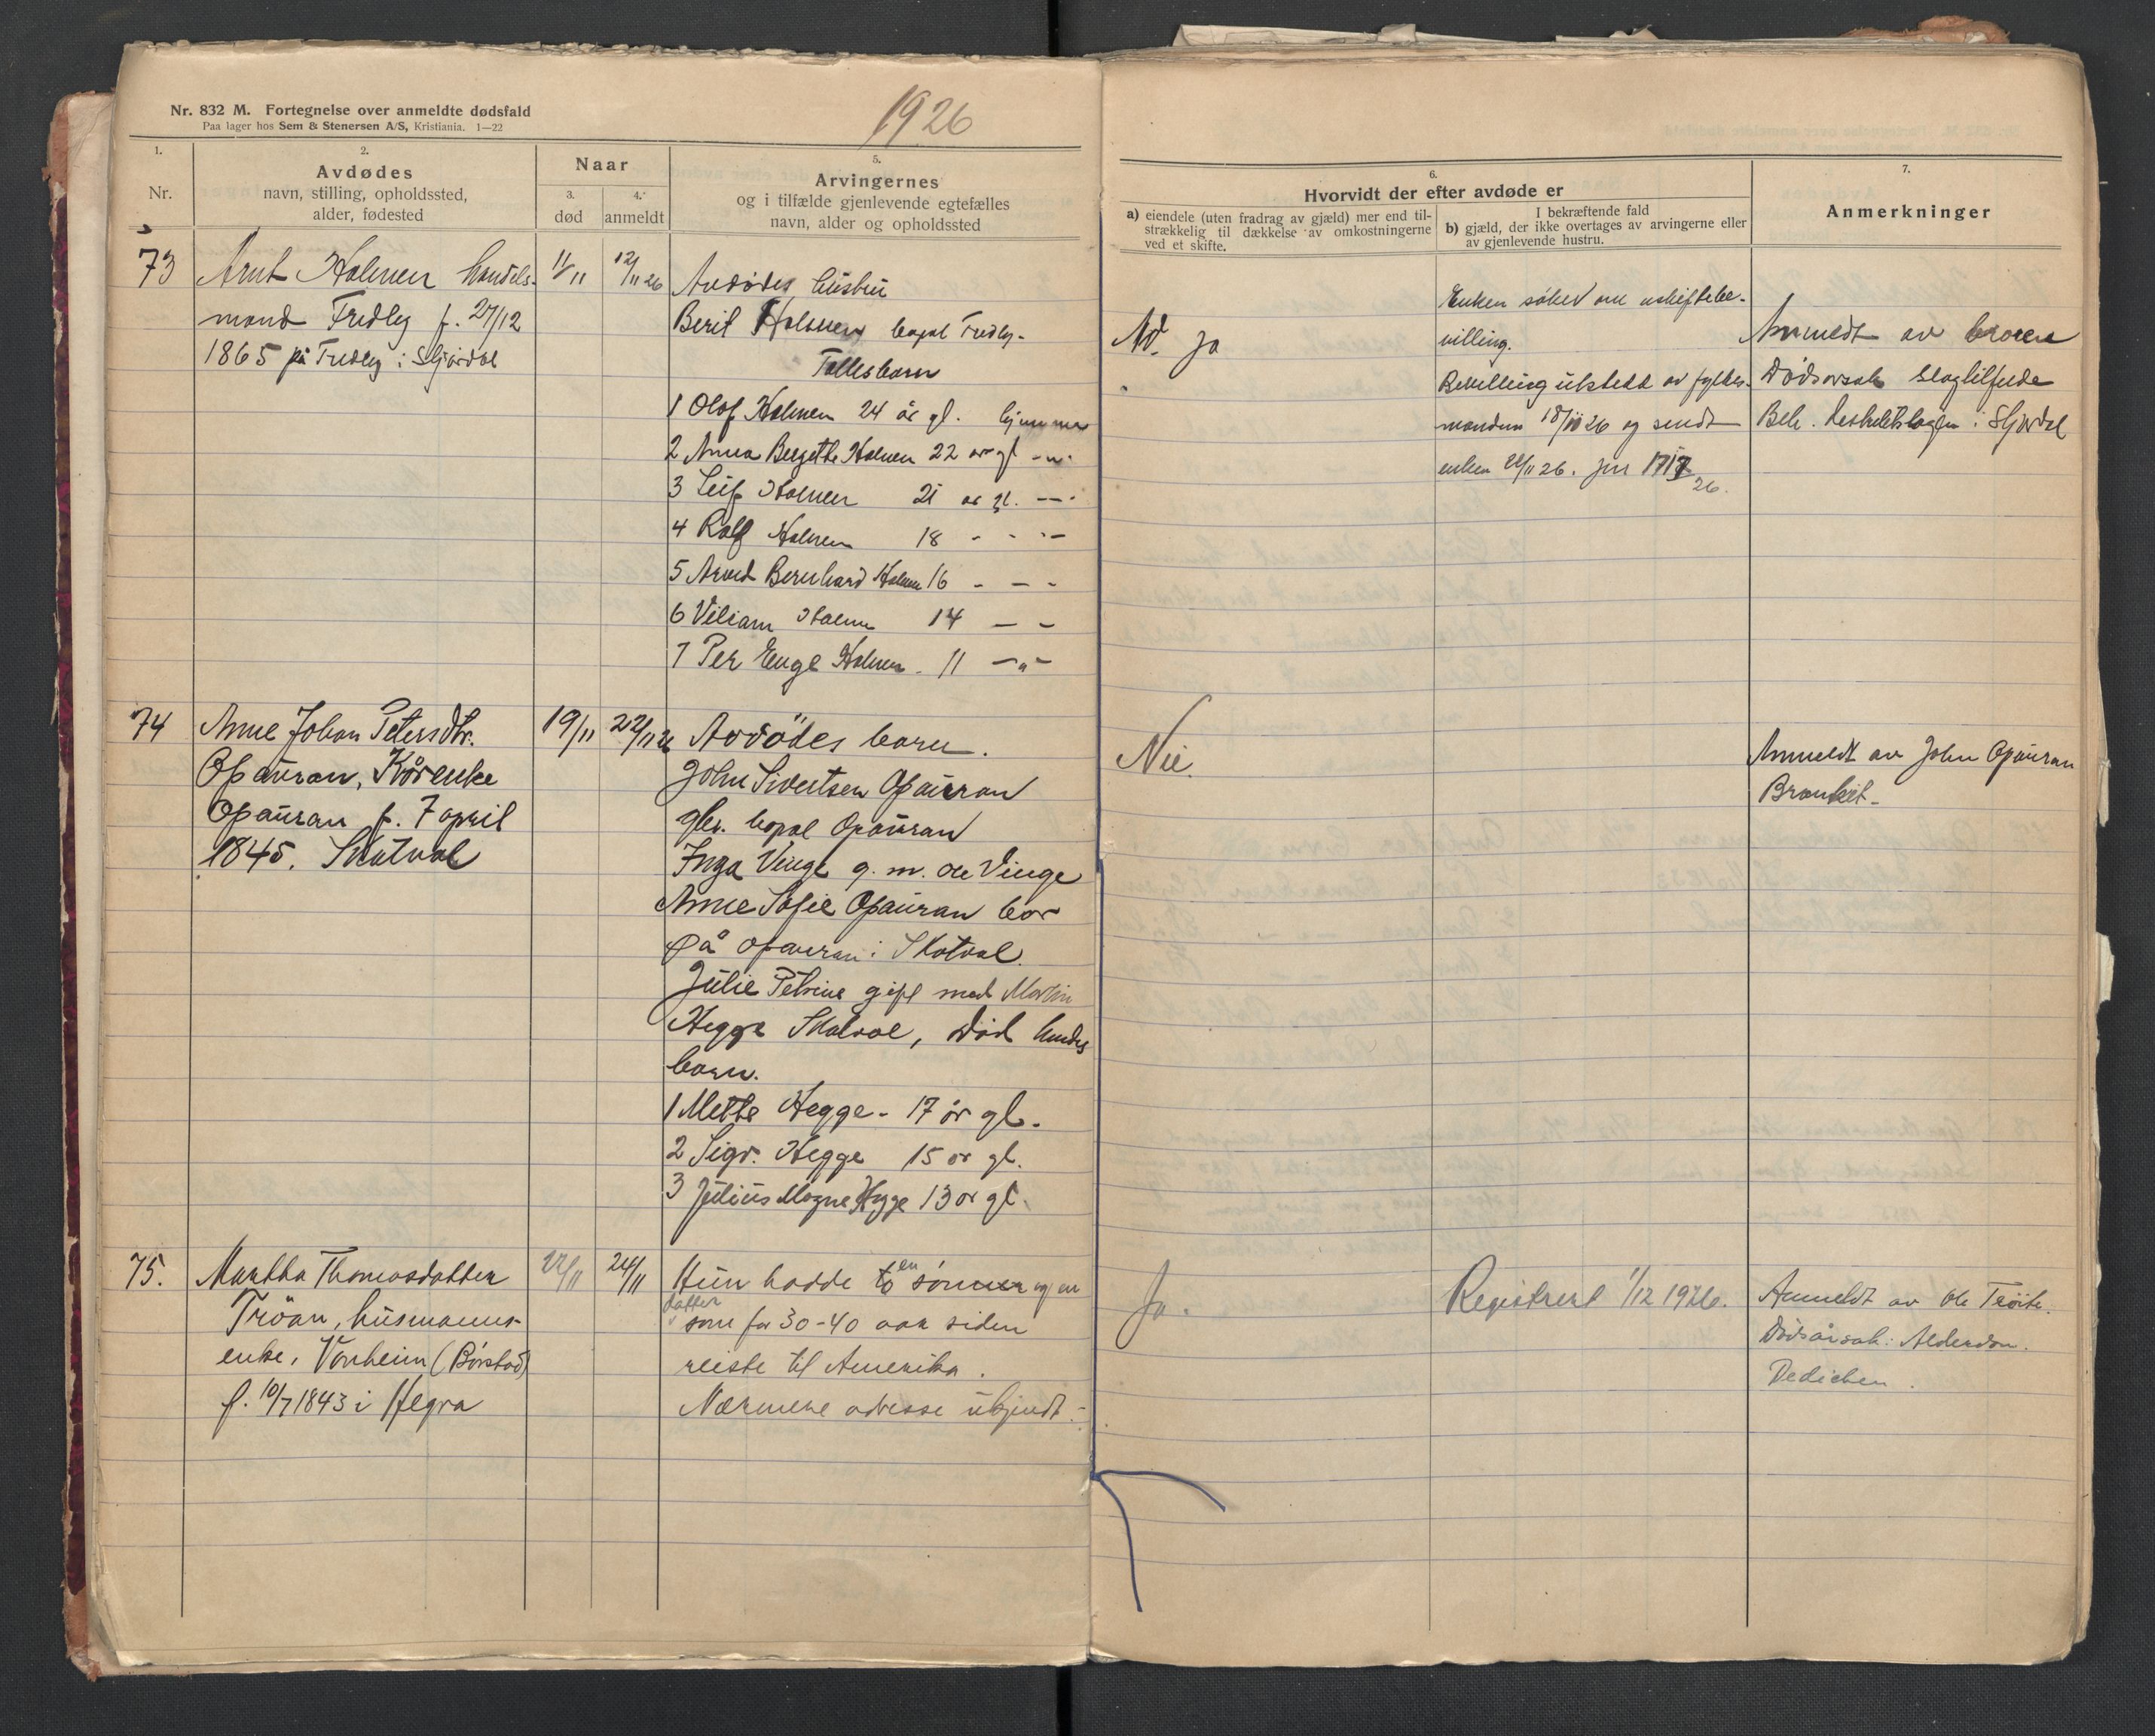 Nr. 832 M. Fortegnelse over anmeldte dødsfald
Paa lager hos Sem & Stenersen A/S, Kristiania. 1—22
1926
1.
Nr.
2.
Avdødes
navn, stilling, opholdssted,
alder, fødested
Naar
3.
død
4.
anmeldt
5.
Arvingernes
og i tilfælde gjenlevende egtefælles
navn, alder og opholdssted
6.
Hvorvidt der efter avdøde er
a) eiendele (uten fradrag av gjæld) mer end til-
strækkelig til dækkelse av omkostningerne
ved et skifte.
I bekræftende fald
b) gjæld, der ikke overtages av arvingerne eller
av gjenlevende hustru.
7.
Anmerkninger
73
Arnt Holmen handels-
mand Fredly f. 27/12
1865 på Fredly i Stjørdal
11/11
12/11 26
Avdødes hustru
Berit Holmen bopæl Fredly.
Fellesbarn
1 Olaf Holmen 24 år gl. hjemme
2 Anna Bergethe Holmen 22 år gl -"-
3 Leif Holmen 21 år gl. —"
4 Rolf Holmen 18 - - -
5 Arvid Bernhard Holmen 16 - — -
6 Viliam Holmen 14 — -
7 Per Enge Holmen. 11 —"-
Ad. Ja
Enken søker om uskiftebe-
villing.
Bevilling utstedt av fylkes-
manden 18/11 26 og sendt
enken 22/11 26. jnr 1717
26.
Anmeldt av broren
Dødsårsak slagtilfelde
Beh. i Stjørdal
74
Anne Johan Petersdtr.
Opauran, Kårenke
Opauran f. 7 april
1845. Skatval
19/11
22/11 26
Avdödes barn.
John Sivertsen Opauran
gbr. bopæl Opauran
Inga Vinge g. m. Ole Vinge
Anne Sofie Opauran bor
på Opauran i Skatval.
Julie Petrine gift med Martin
Hegge Skatval, død hendes
barn.
1 Mette Hegge - 17 år gl.
2 Sigr. Hegge 15 år gl.
3 Julius Magne Hegge 13 år gl.
Nei.
Anmeldt av John Opauran
Bronkit.
75.
Martha Thomasdatter
Tröan, husmanns-
enke, Vonheim (Børstad)
f. 10/7 1843 i Hegra
22/11
24/11
Hun hadde to en sønner og en
datter
som for 30-40 aar siden
reiste til Amerika.
Nærmere adresse ukjendt.-
Ja.
Registrert 1/12 1926.
Anmeldt av Ole Tröite.
Dødsårsak: Alderdom.
Dedichen.